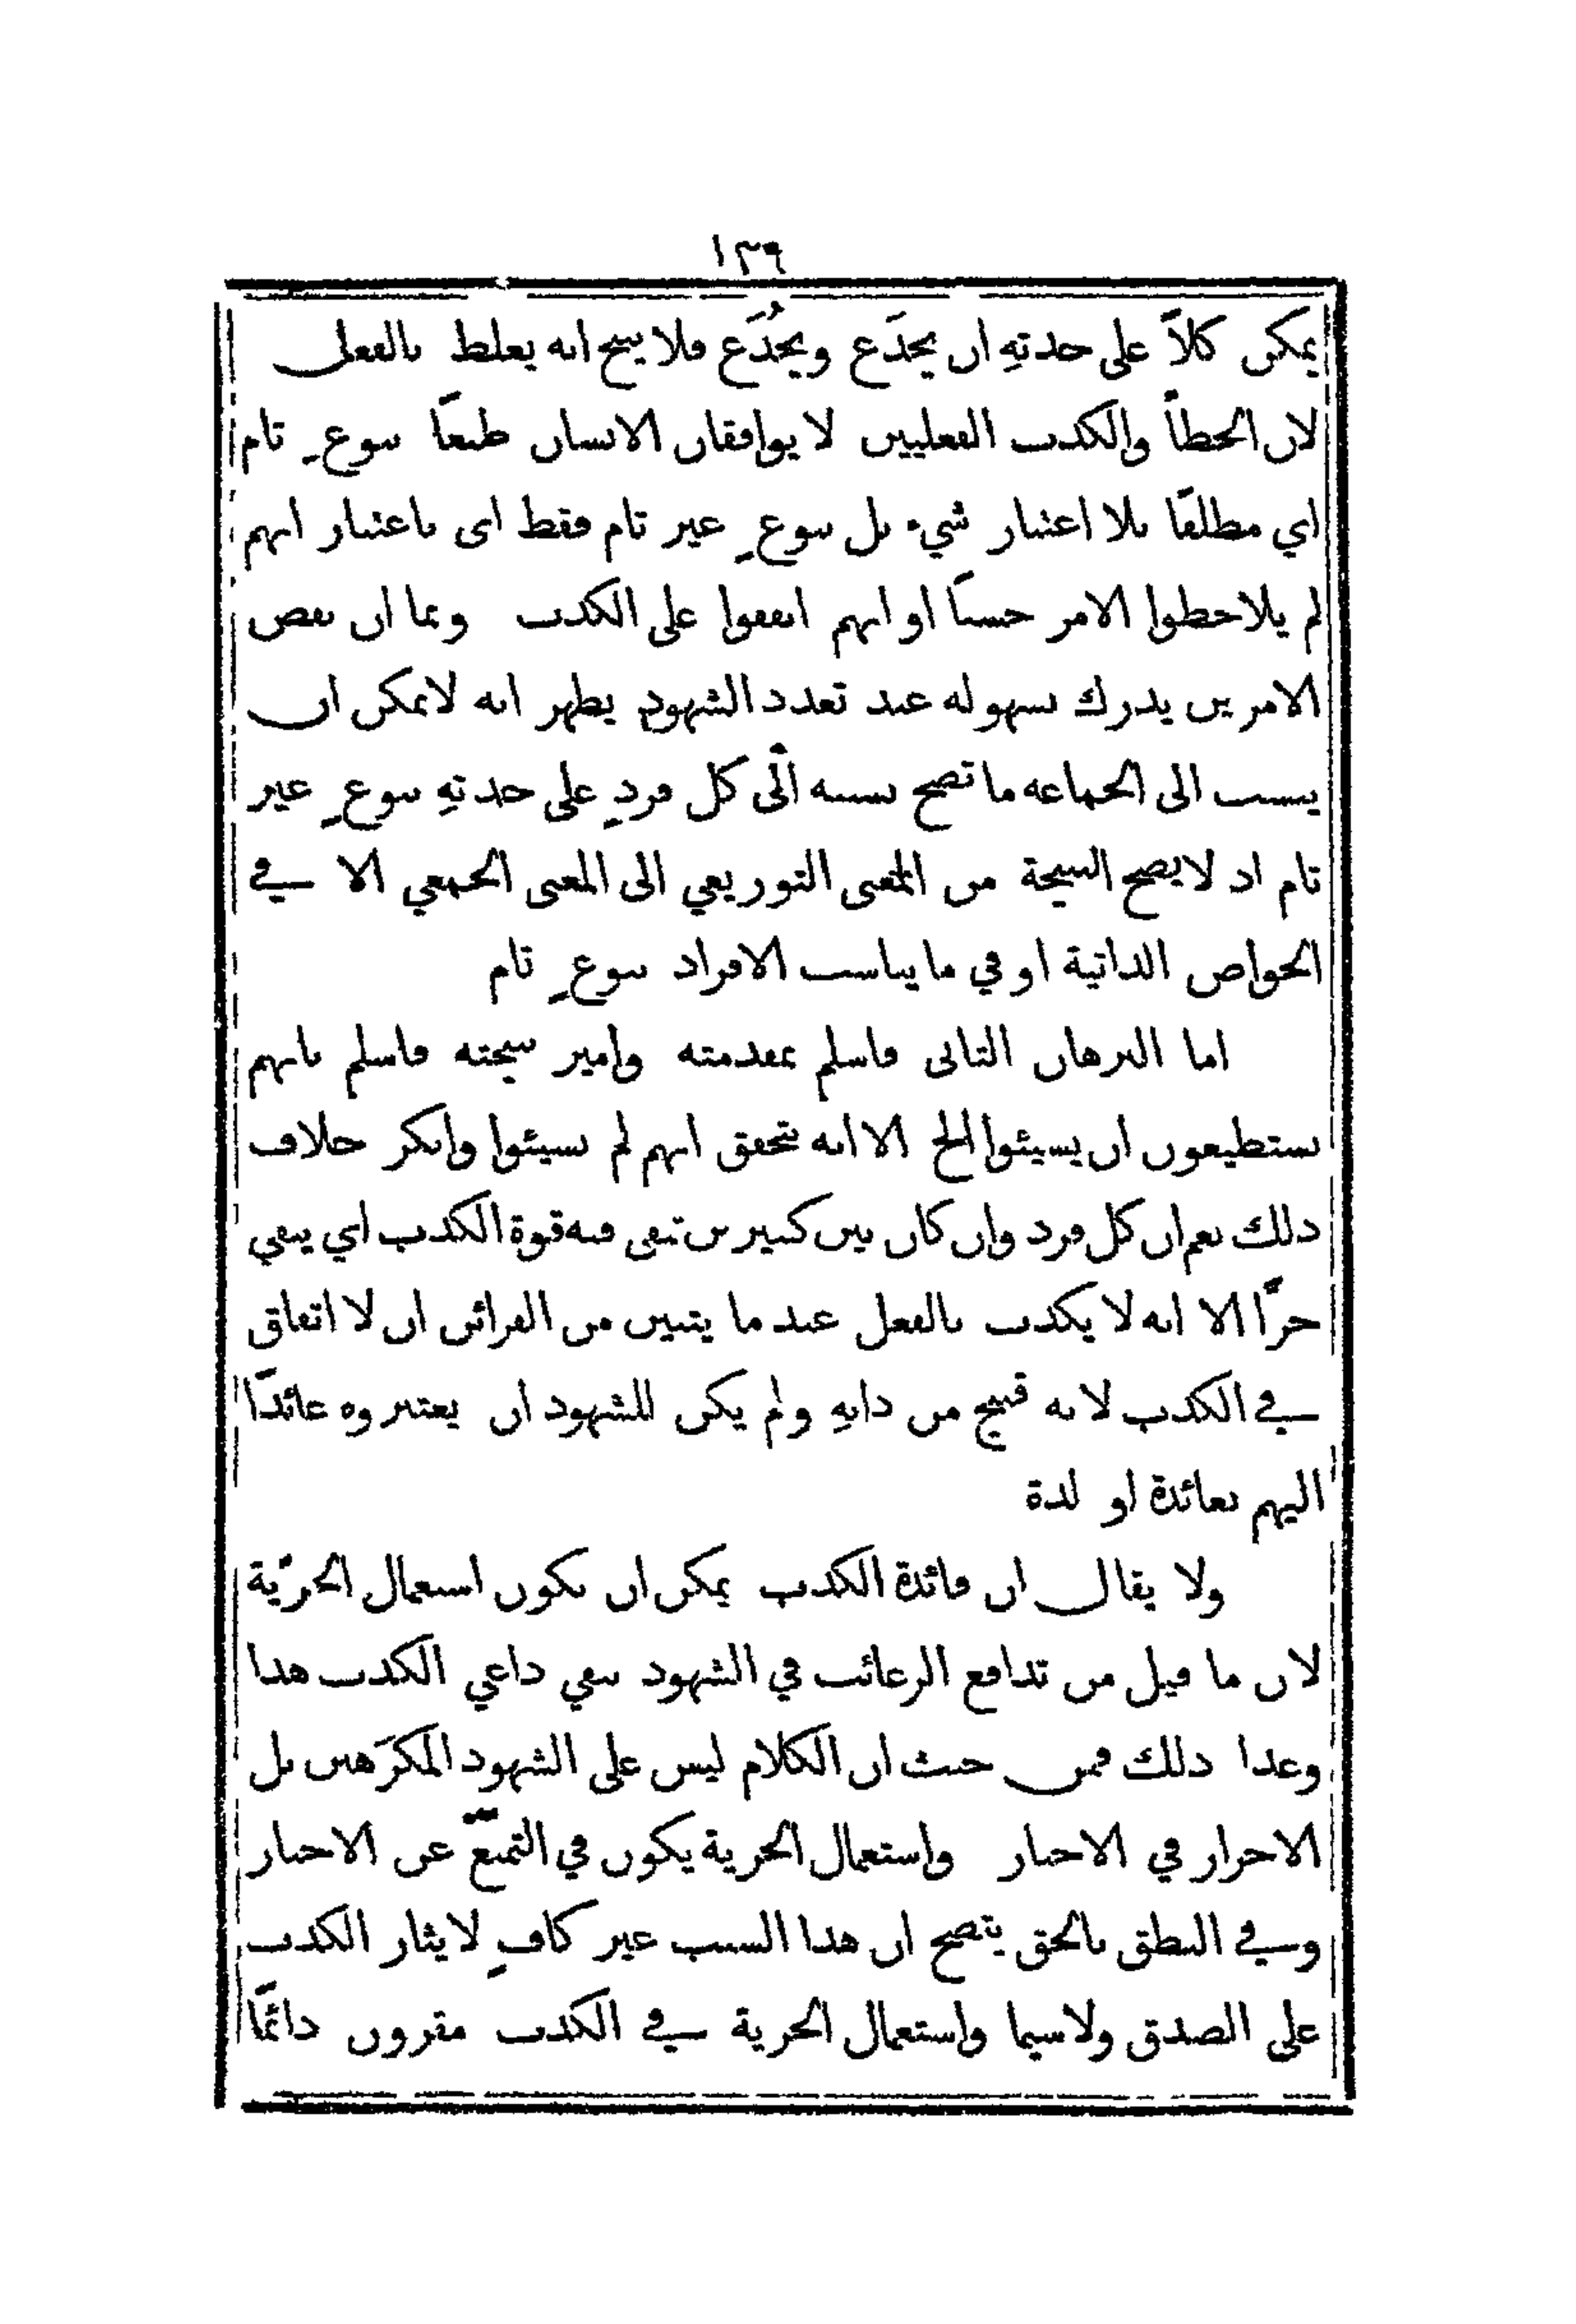 ١٣٩
يمكن كلاًّ على حدتهِ ان يخدَع ويُخدَع فلا ينتج انه يغلط بالفعل
لان الخطأ والكذب الفعليين لا يوافقان الانسان طبعًا بنوعٍ تام
اي مطلقًا بلا اعتبار شيء بل بنوعٍ غير تام فقط اى باعتبار انهم
لم يلاحظوا الامر حسنًا او انهم اتفقوا على الكذب وبما ان نقص
الامرين يدرك بسهوله عند تعدد الشهود يظهر انه لا يمكن ان
ينسب الى الجماعه ما تصح نسبته الى كل فردٍ على حدتهِ بنوعٍ غير
تام اذ لا يصح النتيجة من المعنى التوزيعي الى المعنى الجمعي الا في
الخواص الذاتية او في ما يناسب الافراد بنوعٍ تام
اما البرهان الثانى فاسلم بمقدمته واميز نتيجته فاسلم بانهم
يستطيعون ان يسيئوا الخ الا انه يتحقق انهم لم يسيئوا وانكر خلاف
ذلك نعم ان كل فرد وان كان بين كثيرين تبقى فيه قوة الكذب اي يبقى
حرًّا الا انه لا يكذب بالفعل عند ما يتبين من القرائن ان لا اتفاق
في الكذب لانه قبيح من ذاتهِ ولم يكن للشهود ان يعتبروه عائدًا
اليهم بفائدة او لذة
ولا يقال ان فائدة الكذب يمكن ان تكون استعمال الحرّية
لان ما قيل من تدافع الرغائب في الشهود ينفي داعي الكذب هذا
وعدا ذلك فمن حيث ان الكلام ليس على الشهود المكرَهين بل
الاحرار في الاخبار واستعمال الحرية يكون في التمنّع عن الاخبار
وفي النطق بالحق يتضح ان هذا السبب غير كافٍ لايثار الكذب
على الصدق ولاسيما واستعمال الحرية في الكذب مقرون دائمًا